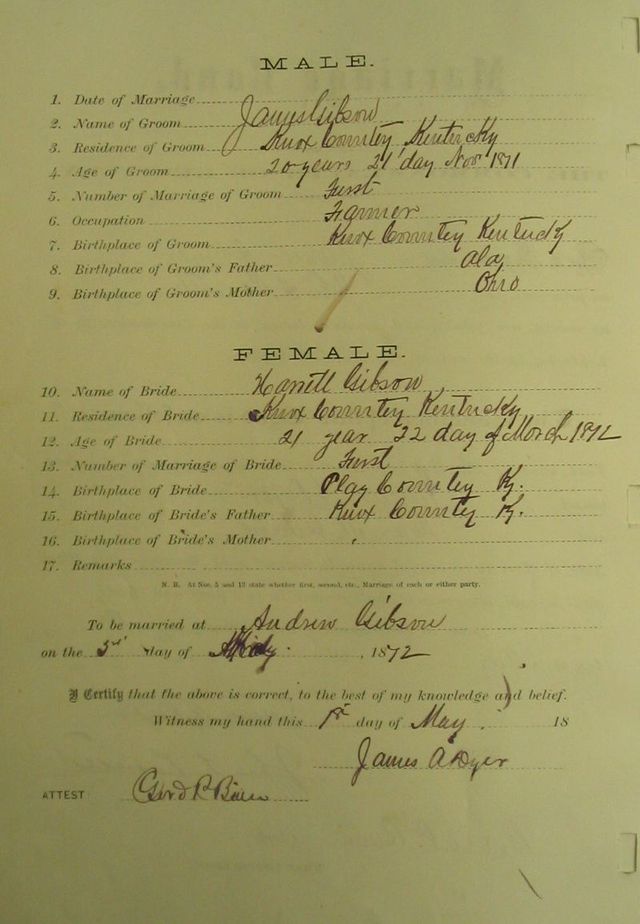 MALE.
1. Date of Marriage
2. Name of Groom James Gibson
3. Residence of Groom Knox Country Kentucky
4. Age of Groom 20 years 21 day Nov 1871
5. Number of Marriage of Groom First
6. Occupation Farmer
7. Birthplace of Groom Knox Country Kentucky
8. Birthplace of Groom's Father Ala
9. Birthplace of Groom's Mother Ohio
FEMALE.
10. Name of Bride Harrett Gibson
11. Residence of Bride Knox Country Kentucky
12. Age of Bride 21 year 22 day of March 1872
13. Number of Marriage of Bride First
14. Birthplace of Bride Clay Country Ky.
15. Birthplace of Bride's Father Knox Country Ky.
16. Birthplace of Bride's Mother
17. Remarks
N. B. At Nos. 5 and 13 state whether first, second, etc., Marriage of each or either party.
To be married at Andrew Gibson
on the 3rd day of May 1872
I Certify that the above is correct, to the best of my knowledge and belief.
Witness my hand this 1st day of May 18
James A Dyer
ATTEST